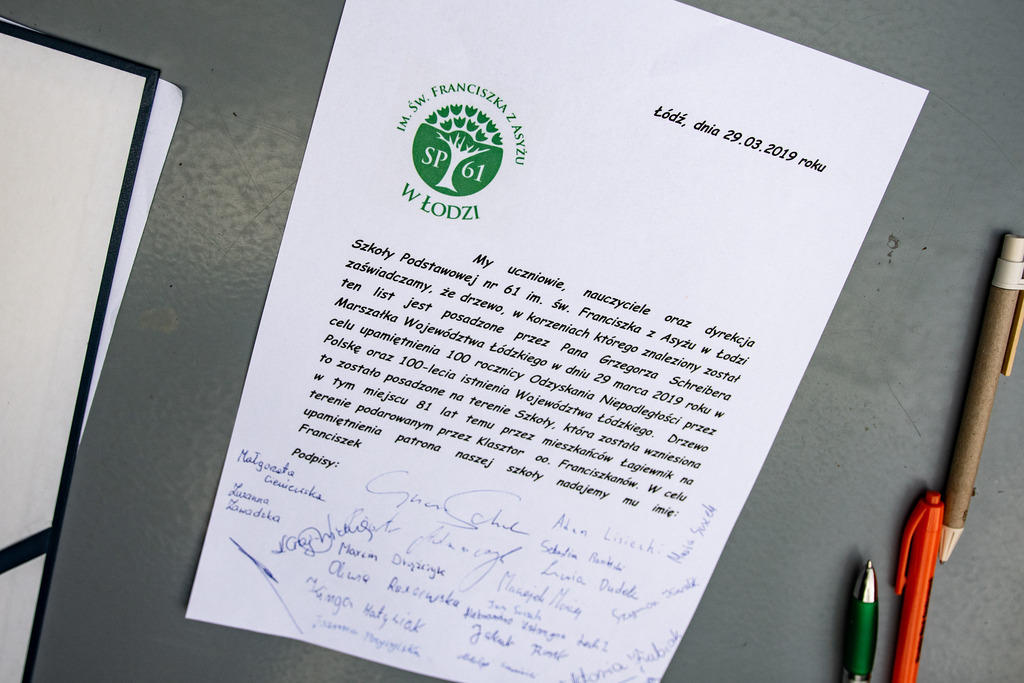 IM. ŚW. FRANCISZKA Z ASYŻU
SP 61
W ŁODZI
Łódź, dnia 29.03.2019 roku
My uczniowie, nauczyciele oraz dyrekcja
Szkoły Podstawowej nr 61 im. św. Franciszka z Asyżu w Łodzi
zaświadczamy, że drzewo, w korzeniach którego znaleziony został
ten list jest posadzone przez Pana Grzegorza Schreibera
Marszałka Województwa Łódzkiego w dniu 29 marca 2019 roku w
celu upamiętnienia 100 rocznicy Odzyskania Niepodległości przez
Polskę oraz 100-lecia istnienia Województwa Łódzkiego. Drzewo
to zostało posadzone na terenie Szkoły, która została wzniesiona
w tym miejscu 81 lat temu przez mieszkańców Łagiewnik na
terenie podarowanym przez Klasztor oo. Franciszkanów. W celu
upamiętnienia patrona naszej szkoły nadajemy mu imię:
Franciszek
Podpisy:
Małgorzata
Zuzanna
Zawadzka
Adam Lisiecki
Marcin
Oliwia
Kinga
Dudek
Maciej
Jakub